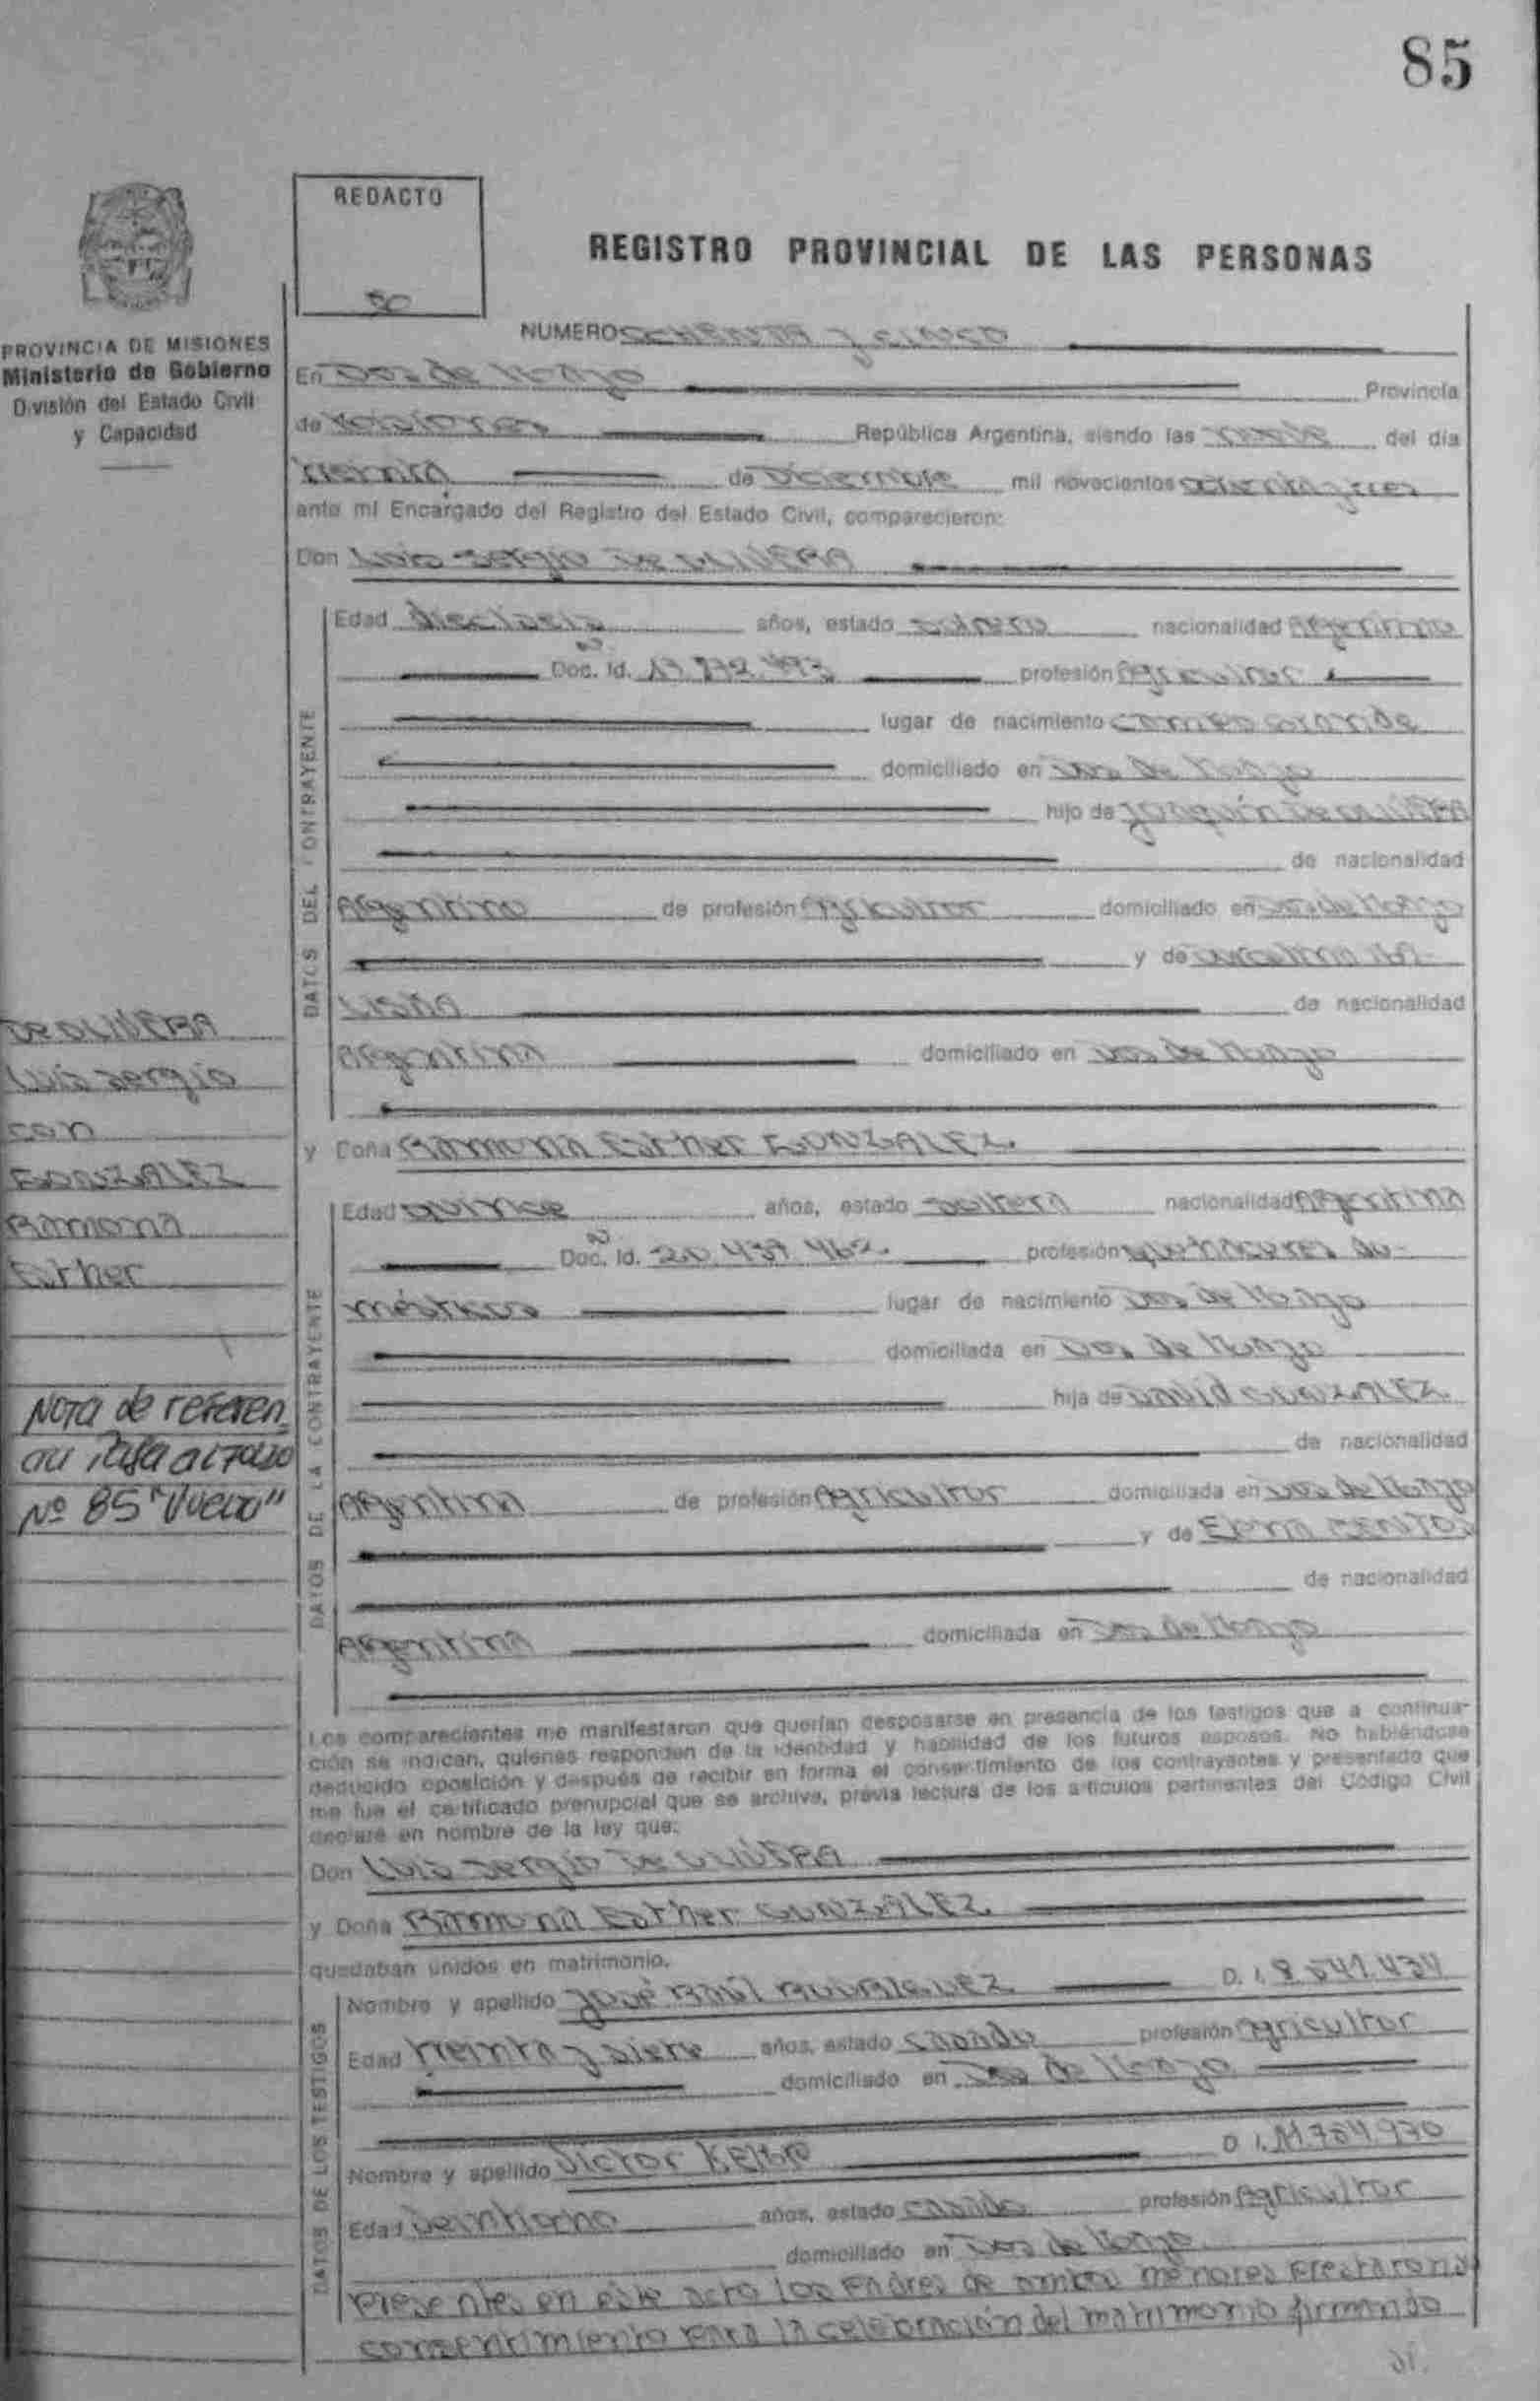 85
REDACTO
REGISTRO PROVINCIAL DE LAS PERSONAS
PROVINCIA DE MISIONES
Ministerio de Gobierno
División del Estado Civil
y Capacidad
NUMERO OCHENTA y CINCO
En Dos de Mayo Provincia
de Misiones República Argentina, siendo las del día
treinta de Diciembre mil novecientos ochenta y tres
ante mi Encargado del Registro del Estado Civil, comparecieron:
Don Luis Sergio De OLIVERA
DATOS DEL CONTRAYENTE
Edad años, estado soltero nacionalidad Argentino
Doc. Id. profesión Agricultor
lugar de nacimiento Campo Grande
domiciliado en Dos de Mayo
hijo de Joaquín De OLIVERA
de nacionalidad
Argentino de profesión Agricultor domiciliado en Dos de Mayo
y de
de nacionalidad
Argentina domiciliado en Dos de Mayo
y Doña Ramona Esther GONZALEZ.
DATOS DE LA CONTRAYENTE
Edad quince años, estado soltera nacionalidad Argentina
Doc. Id. 20.439.462. profesión quehaceres do-
mésticos lugar de nacimiento Dos de Mayo
domiciliada en Dos de Mayo
hija de David GONZALEZ
de nacionalidad
Argentina de profesión Agricultor domiciliada en Dos de Mayo
y de Elena BENITEZ
de nacionalidad
Argentina domiciliada en Dos de Mayo
Los comparecientes me manifestaron que querían desposarse en presencia de los testigos que a continua-
ción se indican, quienes responden de la identidad y habilidad de los futuros esposos. No habiéndose
deducido oposición y después de recibir en forma el consentimiento de los contrayentes y presentado que
me fue el certificado prenupcial que se archiva, previa lectura de los artículos pertinentes del Código Civil
declaré en nombre de la ley que:
Don Luis Sergio De OLIVERA
y Doña Ramona Esther GONZALEZ.
quedaban unidos en matrimonio.
DATOS DE LOS TESTIGOS
Nombre y apellido José Raúl RODRIGUEZ D. I. 8.541.434
Edad treinta y siete años, estado casado profesión Agricultor
domiciliado en Dos de Mayo
Nombre y apellido Victor D. I.
Edad veintiocho años, estado casado profesión Agricultor
domiciliado en Dos de Mayo.
Presentes en este acto los Padres de ambos menores prestaron su
consentimiento para la celebración del matrimonio firmando
DE OLIVERA
Luis Sergio
con
GONZALEZ
Ramona
Esther
Nota de referen
cia Pasa al folio
Nº 85 "Vuelto"